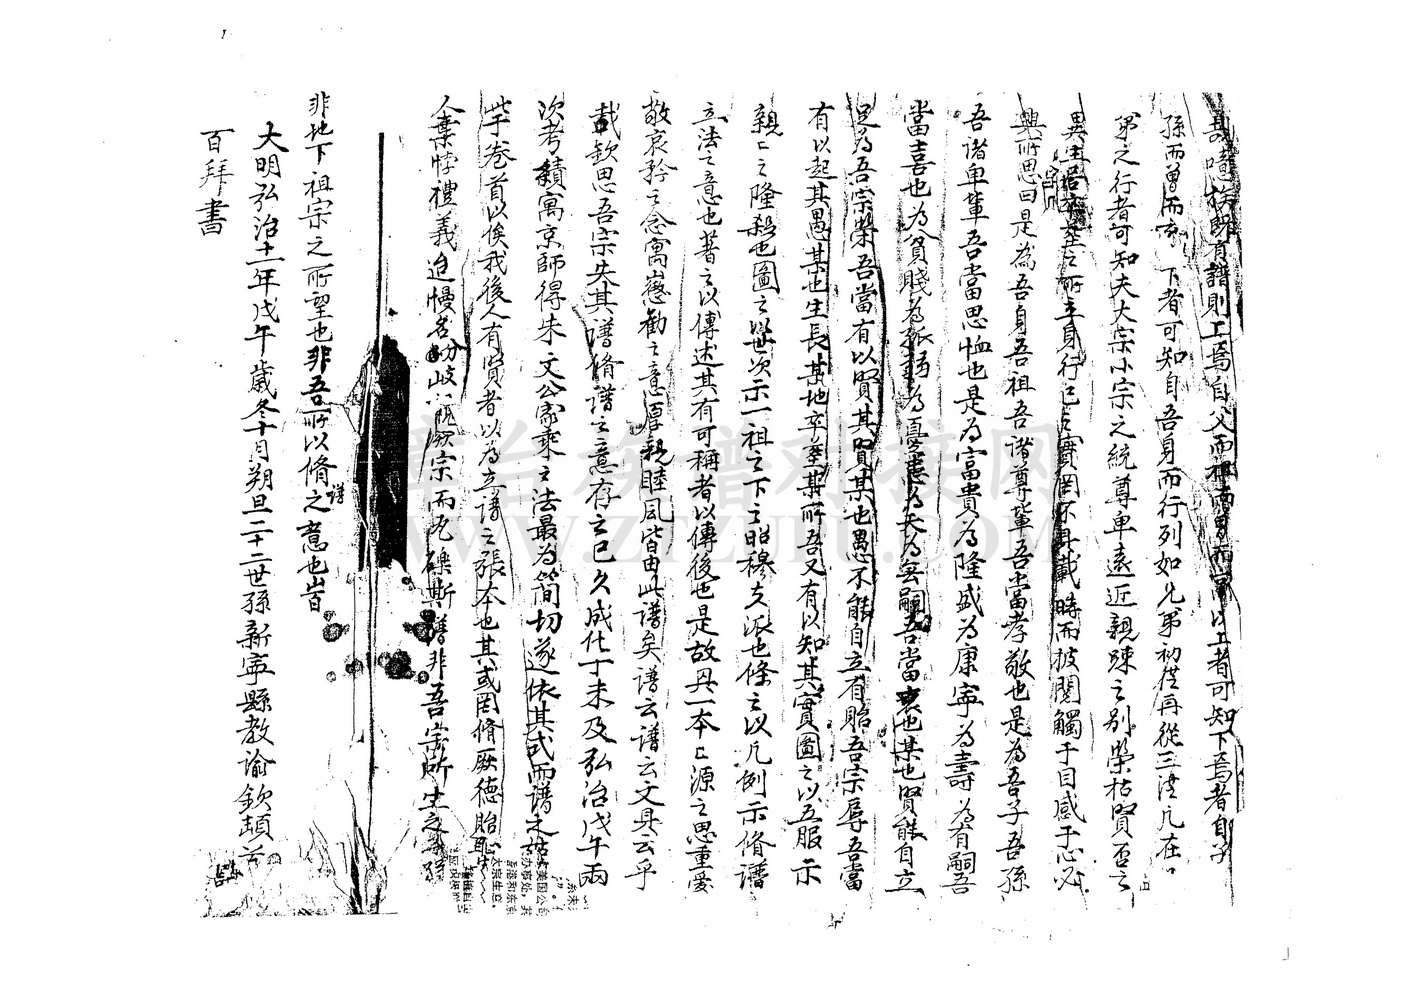 噫族既有譜則上焉自父而祖而曾而高以上者可知下焉者自子
孫而曾而玄下者可知自吾身而行列如兄弟初從再從三從凡在
弟之行者可知夫大宗小宗之統尊卑遠近親踈之別榮枯賢否之
異生居卒塟之所立身行己之實罔不具載時而披閱觸于目感于心必
興所思曰是為吾身吾祖吾諸尊輩吾當孝敬也是為吾子吾孫
吾諸卑輩吾當思恤也是為富貴為隆盛為康寧為壽為有嗣吾
當喜也為貧賤為孤弱為憂患為夭為無嗣吾當哀也某也賢能自立
足為吾宗榮吾當有以賢其賢某也愚不能自立有貽吾宗辱吾當
有以起其愚某也生長某地卒塟某所吾又有以知其實圖之以五服示
親〻之隆殺也圖之以世次示一祖之下之昭穆支派也條之以凡例示脩譜
立法之意也著之以傳述其有可稱者以傳後也是故異一本〻源之思重愛
敬哀矜之念寓懲勸之意厚親睦風皆由此譜矣譜云譜云文具云乎
哉欽思吾宗失其譜脩譜之意存之已久成化丁未及弘治戊午兩
次考績寓京師得朱文公家乘之法最為簡切遂依其式而譜之
于卷首以俟我後人有賢者以為立譜之張本也其或罔脩厥德貽
棄悖禮義迨慢名分岐厥宗而瓦礫斯譜非吾宗所生之孫
非地下祖宗之所望也非吾所以脩之譜意也旹
大明弘治十一年戊午歲冬十月朔旦二十二世孫新寧縣教諭欽頓首
百拜書
章台族谱对接网
WWW.ZTZUPU.COM